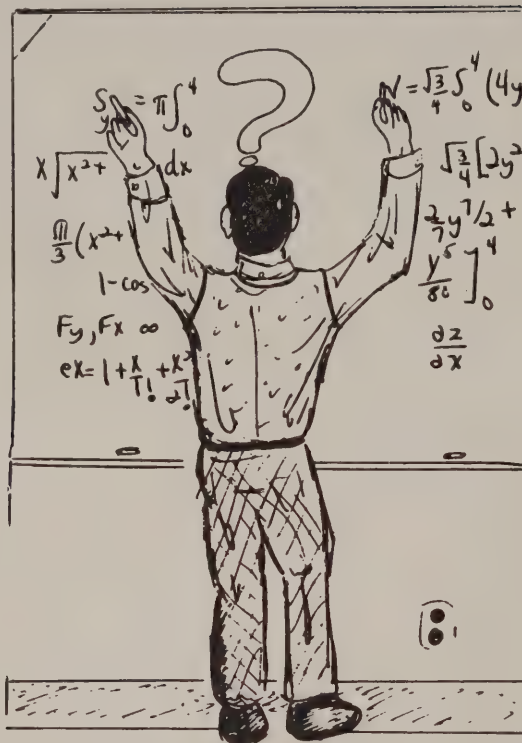 Sy = π∫₀⁴
x√x²⁺ dx
π/3 (x²⁺
1-cos
Fy, Fx ∞
ex = 1 + x/1! + x²/2!
= √3/4 ∫₀⁴ (4y
√3/4 [2y²
2/7 y⁷/² +
]₀⁴
∂z/∂x
?